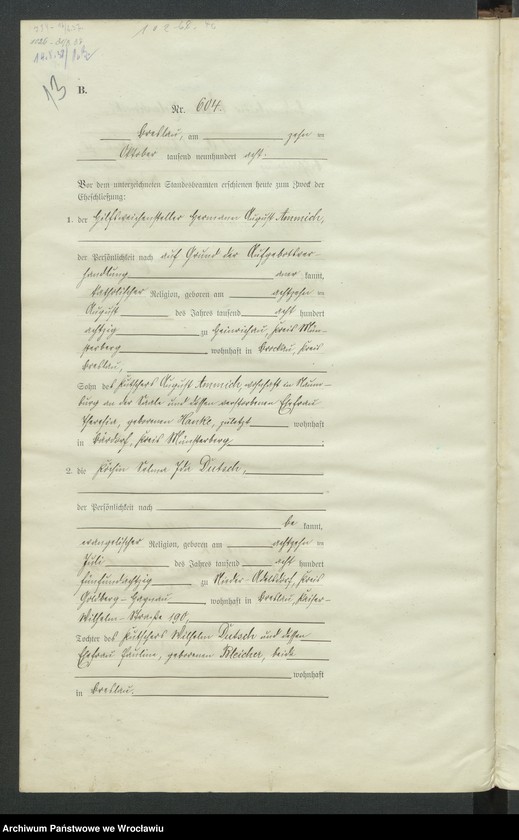 13
B.
Nr. 604.
Breslau, am zehnten
Oktober tausend neunhundert acht.
Vor dem unterzeichneten Standesbeamten erschienen heute zum Zweck der
Eheschließung:
1. der Hilfsweichensteller Hermann August Ammich,
der Persönlichkeit nach auf Grund der Aufgebotsver-
handlung aner kannt,
katholischer Religion, geboren am achtzehnten
August des Jahres tausend acht hundert
achtzig zu Heinrichau, Kreis Mün-
sterberg wohnhaft in Brockau, Kreis
Breslau,
Sohn des Kutschers August Ammich, wohnhaft in Naum-
burg an der Saale und dessen verstorbenen Ehefrau
Theresia, geborenen Hanke, zuletzt wohnhaft
in Bärdorf, Kreis Münsterberg.
2. die Köchin Selma Ida Dutsch,
der Persönlichkeit nach
be kannt,
evangelischer Religion, geboren am achtzehnten
Juli des Jahres tausend acht hundert
fünfundachtzig zu Nieder-Adelsdorf, Kreis
Goldberg-Haynau wohnhaft in Breslau, Kaiser-
Wilhelm-Straße 190,
Tochter des Kutschers Wilhelm Dutsch und dessen
Ehefrau Pauline, geborenen Bleicher, beide
wohnhaft
in Breslau.
Archiwum Państwowe we Wrocławiu